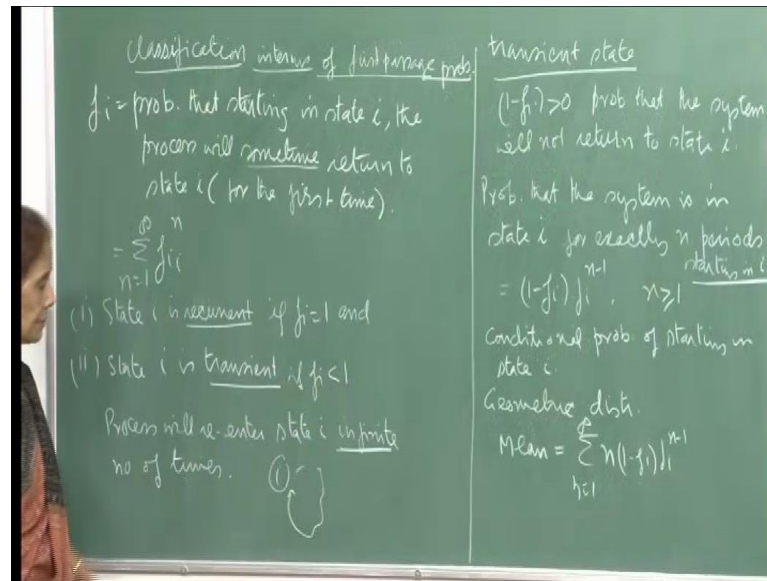 classification interms of first passage prob.
fi = prob. that starting in state i, the
process will sometime return to
state i ( for the first time).
= ∑_{n=1}^{∞} f_{ii}^{n}
(i) State i is recurrent if fi=1 and
(ii) State i is transient if fi<1
Process will re-enter state i infinite
no of times.
i
transient state
(1-fi)>0 prob that the system
will not return to state i.
Prob. that the system is in
state i for exactly n periods
starting in i
= (1-fi) fi^{n-1}, n≥1
Conditional prob. of starting in
state i.
Geometric distr.
Mean = ∑_{n=1}^{∞} n(1-fi) fi^{n-1}